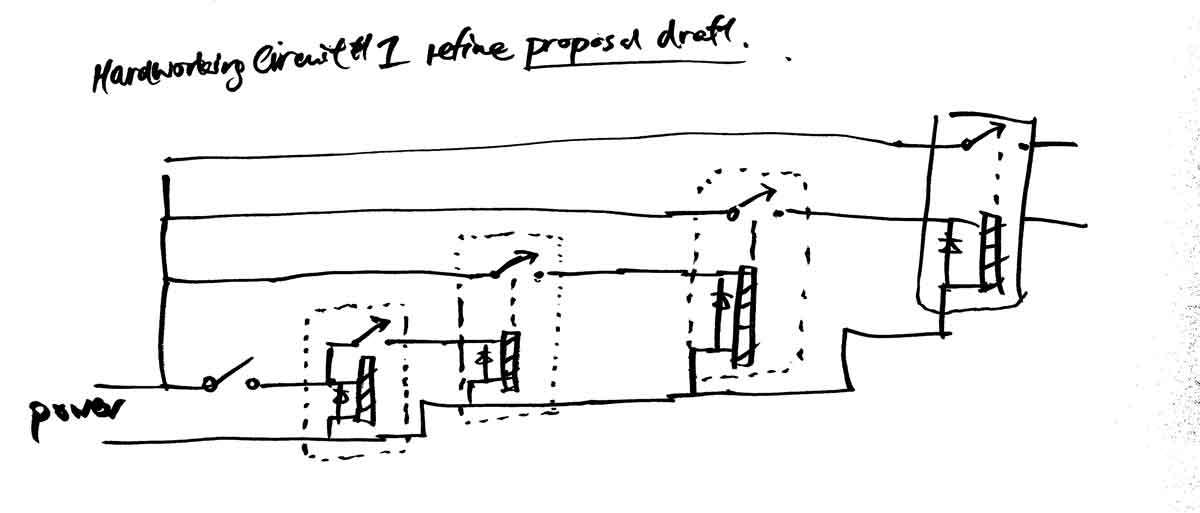 Hardworking Circuit #1 refine proposal draft.
power